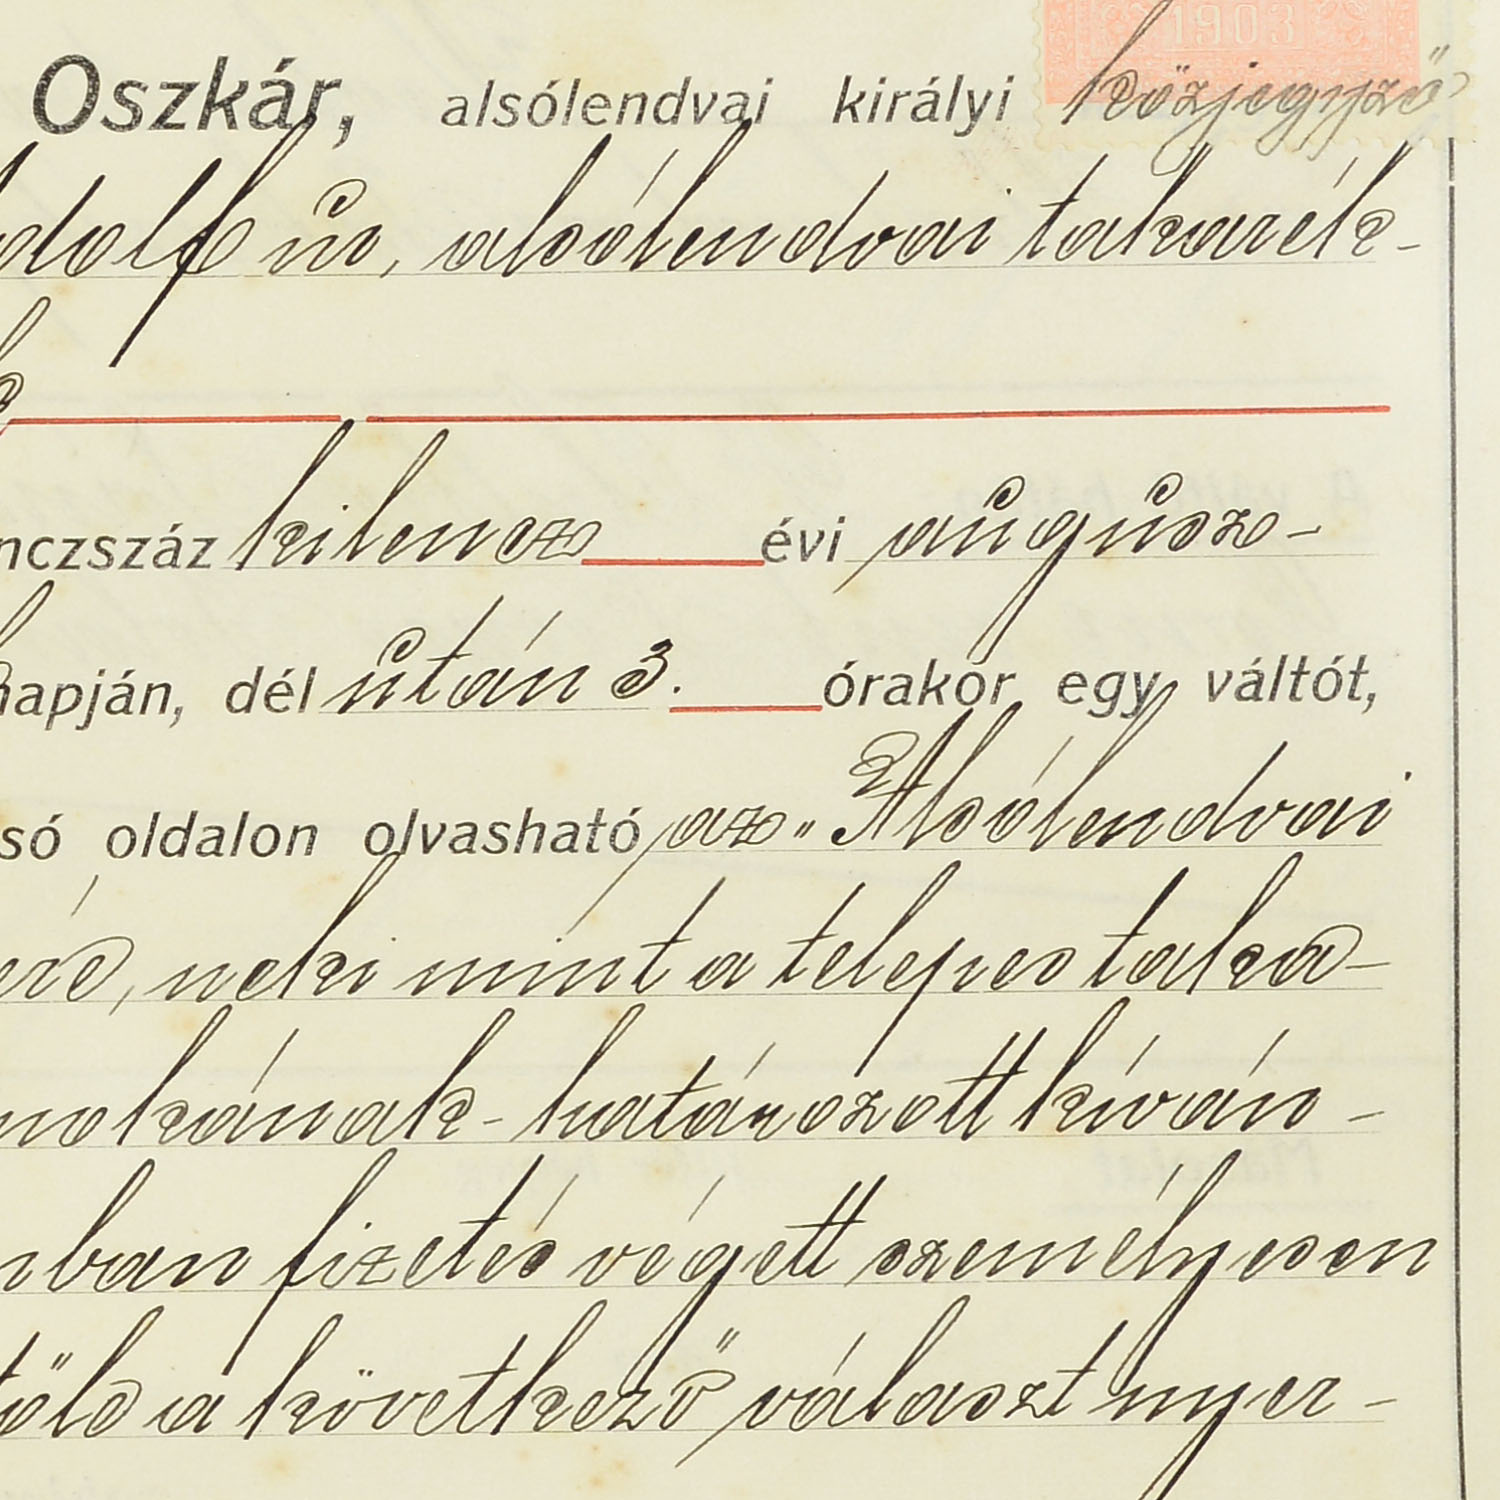 1903
Oszkár, alsólendvai királyi közjegyző
dolf úr, alsólendvai takarék-
nczszáz kilencz évi augusz-
napján, dél után 3. órakor egy váltót,
só oldalon olvasható az „Alsólendvai
neki mint a telepes taka-
nokának - határozott kíván-
nban fizetés végett személyesen
től a következő választ nyer-